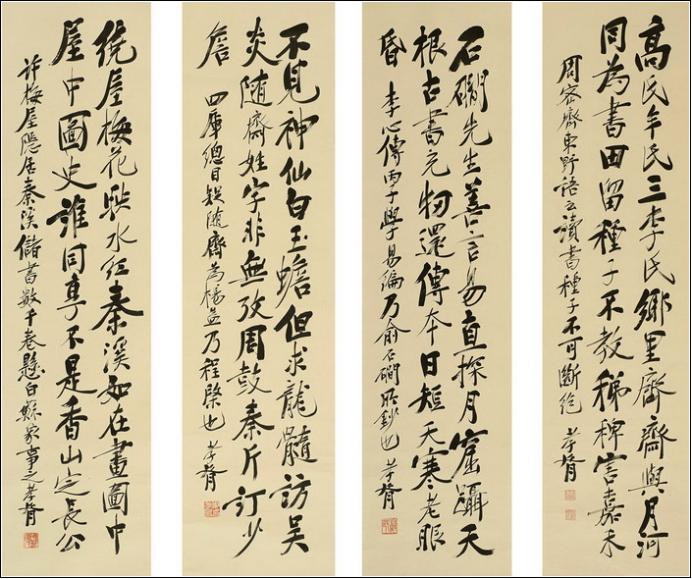 高氏牟氏三李氏鄉里齋齋與月河
同為書田留種子不教稊稗害嘉禾
周密齊東野語云讀書種子不可斷絕 孝胥
石磵先生善言易直探月窟躡天
根古書充牣還傳本日短天寒老眼
昏 李心傳丙子學易編乃俞石磵所鈔也 孝胥
不見神仙白玉蟾但求龍髓訪吳
炎隨齋姓字非無攷周鼓秦斤訂少
詹 四庫總目疑隨齋為楊益乃程棨也 孝胥
繞屋梅花映水紅秦溪如在畫圖中
屋中圖史誰同享不是香山定長公
許梅屋隱居秦溪儲書數千卷懸白蘇象事之孝胥